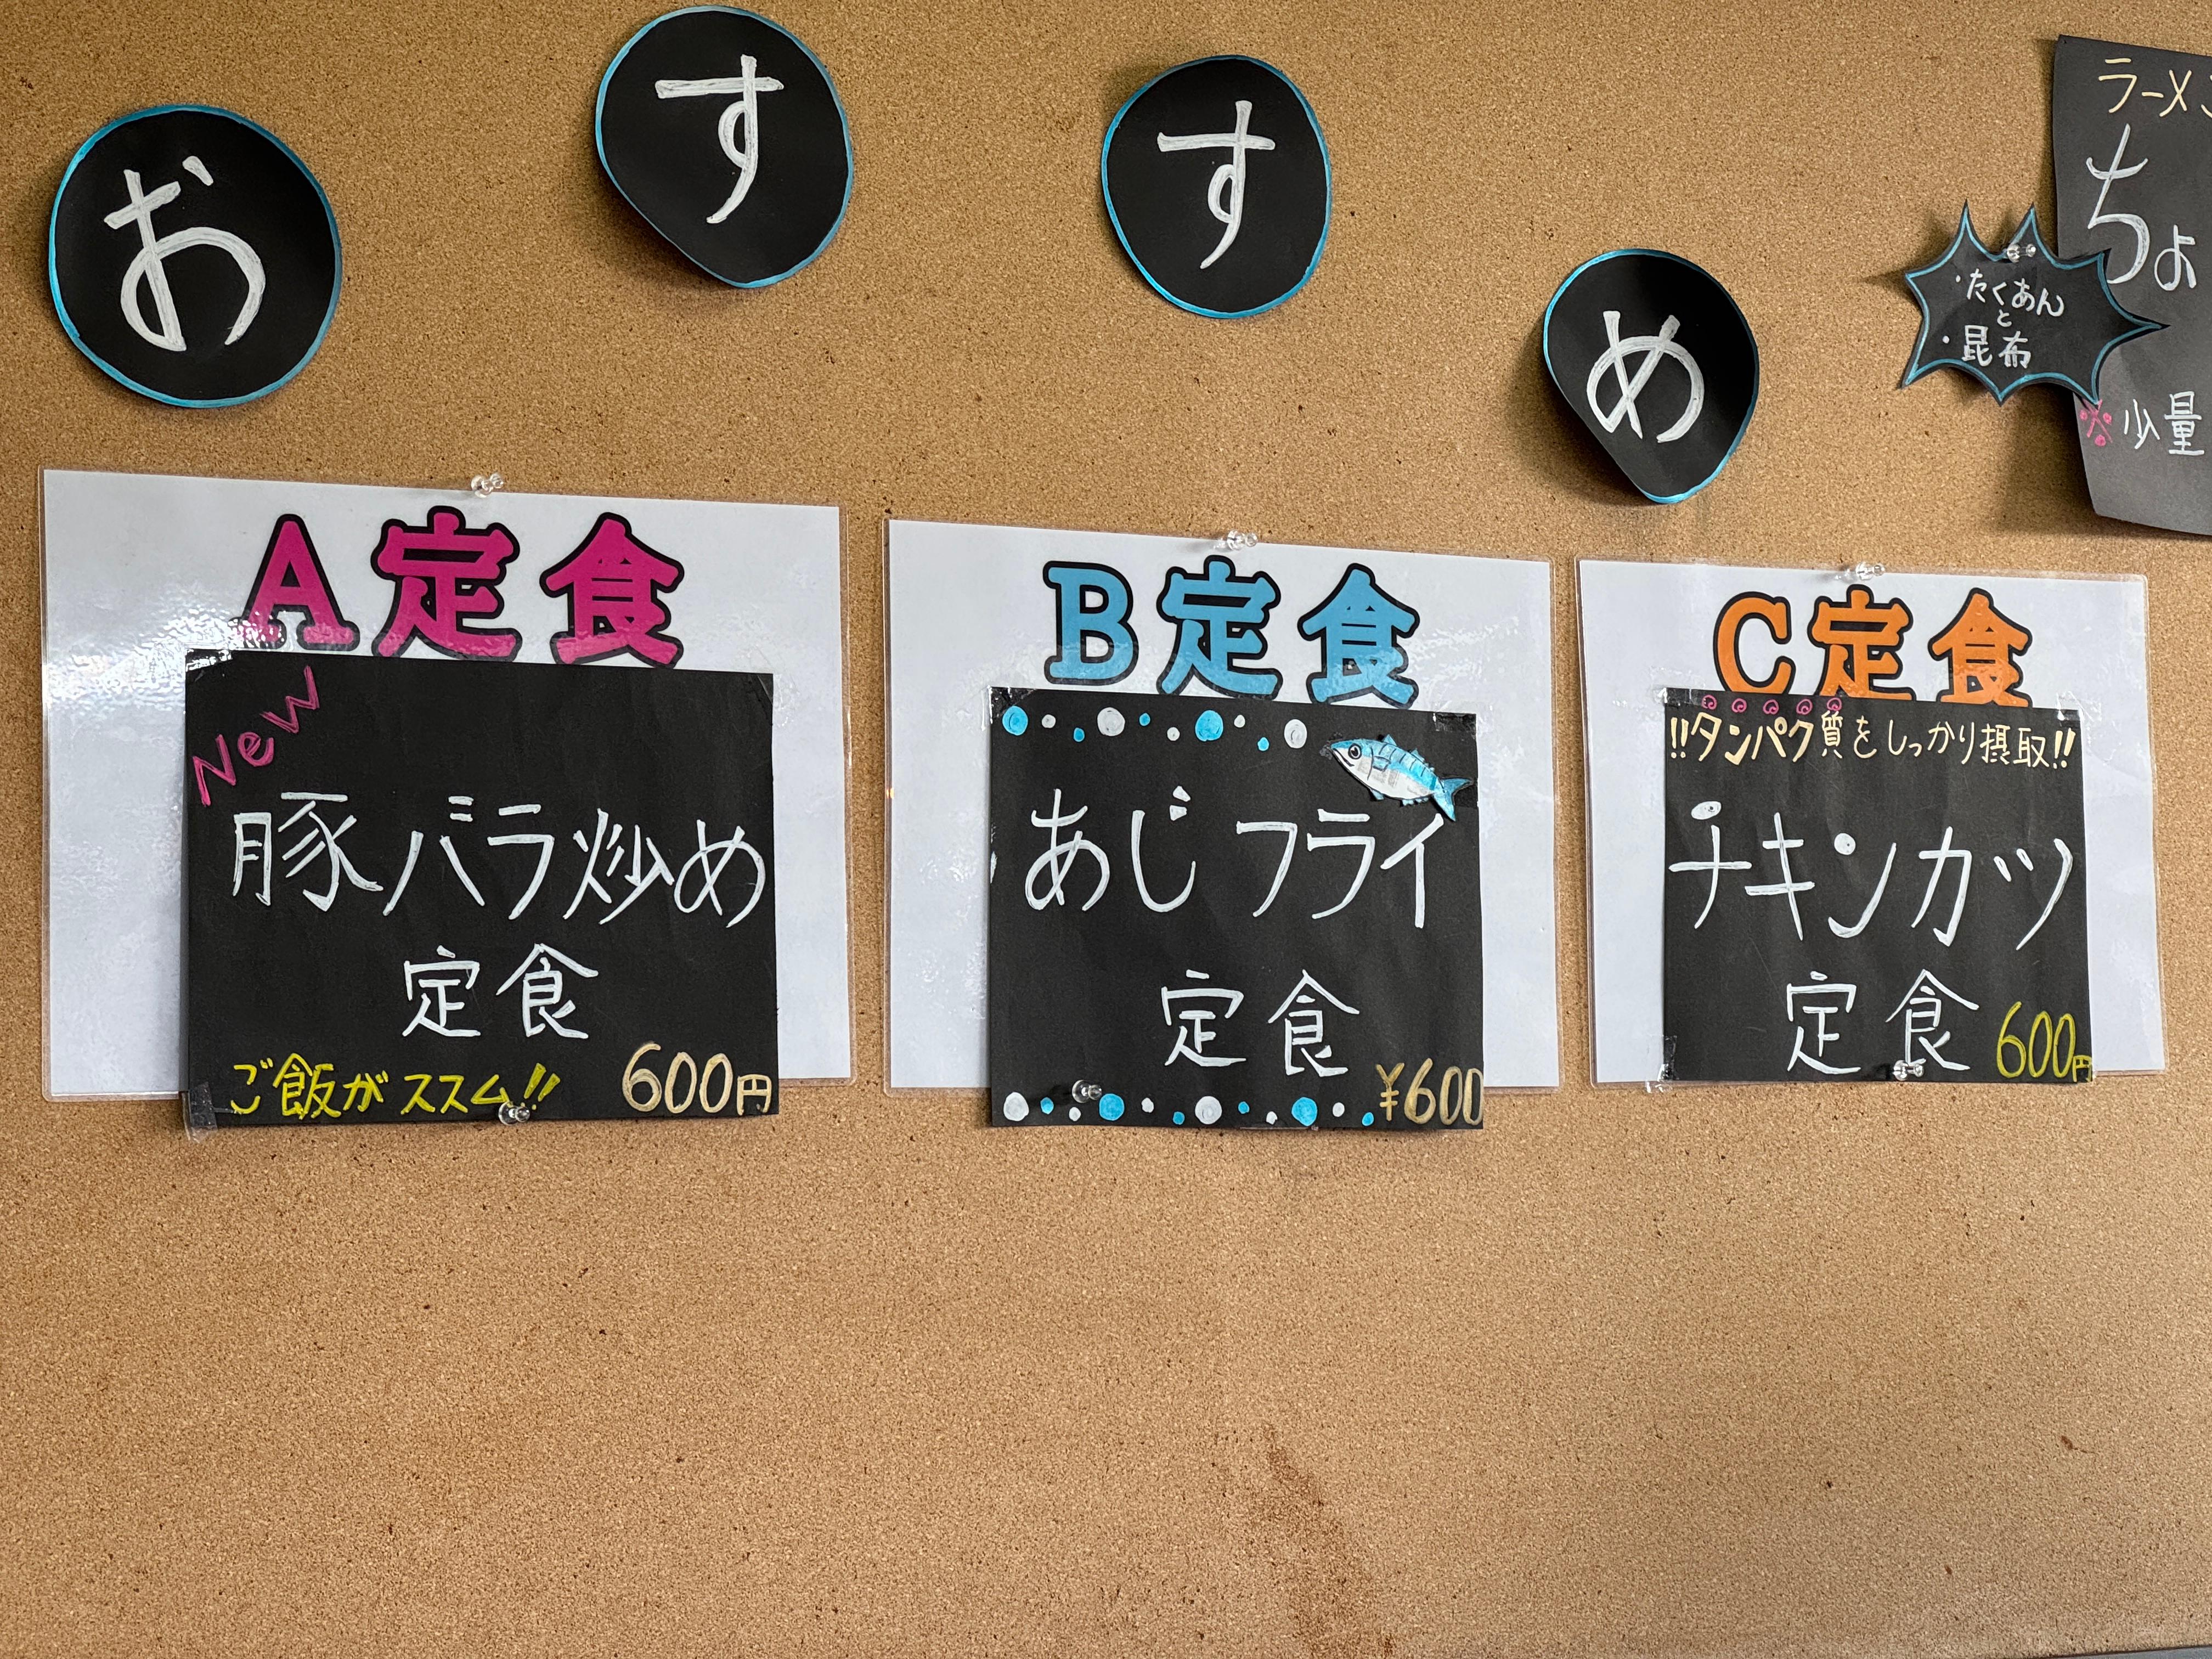 おすすめ
A定食
New
豚バラ炒め
定食
ご飯がススム!!
600円
B定食
あじフライ
定食
¥600
C定食
!!タンパク質をしっかり摂取!!
チキンカツ
定食
600円
ラーメ
ちょ
・たくあん
と
・昆布
※少量